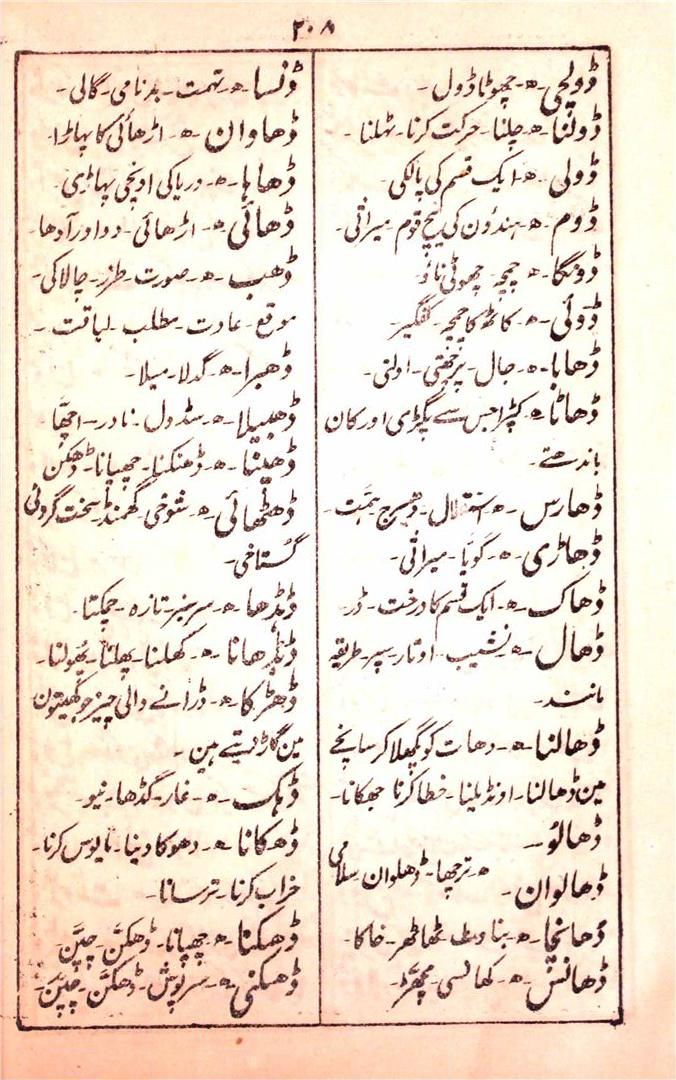 ۲۰۸
ڈولچی - ھ - چھوٹا ڈول -
ڈولنا - ھ - چلنا - حرکت کرنا - ٹہلنا -
ڈولی - ھ - ایک قسم کی پالکی
ڈوم - ھ - ہندؤن کی نیچ قوم - میراثی -
ڈونگا - ھ - چمچہ - چھوٹی ناؤ -
ڈوئی - ھ - کاٹھ کا چمچہ - کفگیر -
ڈھابا - ھ - جال - پرچھتی - اولتی -
ڈھاٹا - ھ - کپڑا جس سے پگڑی اور کان
باندھتے -
ڈھارس - ھ - استقلال - دھیرج ہمّت -
ڈھاڑی - ھ - گویّا - میراثی -
ڈھاک - ھ - ایک قسم کا درخت - ڈر -
ڈھال - ھ - نشیب - اوتار - سپر - طریقہ
مانند -
ڈھالنا - ھ - دھات کو پگھلا کر سانچے
مین ڈھالنا - اونڈیلنا - خطا کرنا جھکانا -
ڈھالو -
ڈھالوان - ھ - ترچھا - ڈھلوان سلامی
ڈھانچا - ھ - بناوٹ ٹھاٹھر - خاکا -
ڈھانس - ھ - کھانسی
ڈنسا - ھ - تہمت - بدنامی - گالی -
ڈھاوان - ھ - اڑھائی کا پہاڑا -
ڈھاہا - ھ - دریا کی اونچی پہاڑی -
ڈھائی - ھ - اڑھائی - دو اور آدھا -
ڈھب - ھ - صورت - طرز - چالاکی -
موقع - عادت - مطلب - لیاقت -
ڈھبرا - ھ - گدلا - میلا -
ڈھبیلا - ھ - سڈول - نادر - اچھّا -
ڈھپنا - ھ - ڈھنکنا - چھپانا - ڈھکن
ڈھٹھائی - ھ - شوخی گھمنڈ - سخت گردنی
گستاخی -
ڈہڈھا - ھ - سرسبز تازہ - چمکتا -
ڈہڈھانا - ھ - کھلنا - پھلنا - پھولنا -
ڈھڑکا - ھ - ڈرانے والی چیز جو کھیتون
مین گاڑ دیتے ہین -
ڈہک - ھ - غار - گڈھا - نیو -
ڈھکانا - ھ - دھوکا دینا - مایوس کرنا -
خراب کرنا - ترسانا -
ڈھکنا - ھ - چھپانا - ڈھکن - چپن -
ڈھکنی - ھ - سرپوش - ڈھکن - چپن -